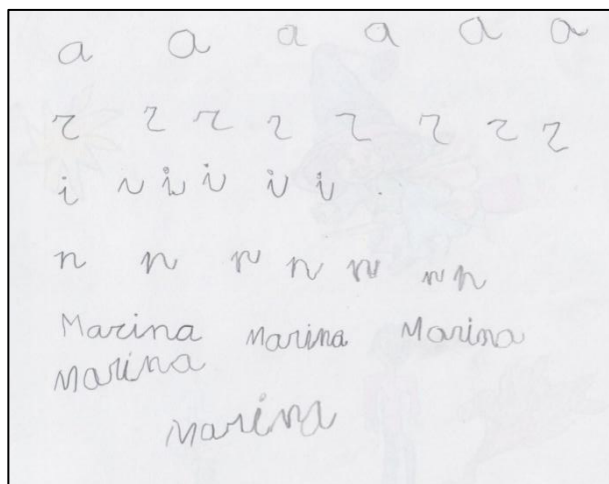 a a a a a a
r r r r r r r r
i i i i i i
n n n n n n n
Marina Marina Marina
Marina
Marina